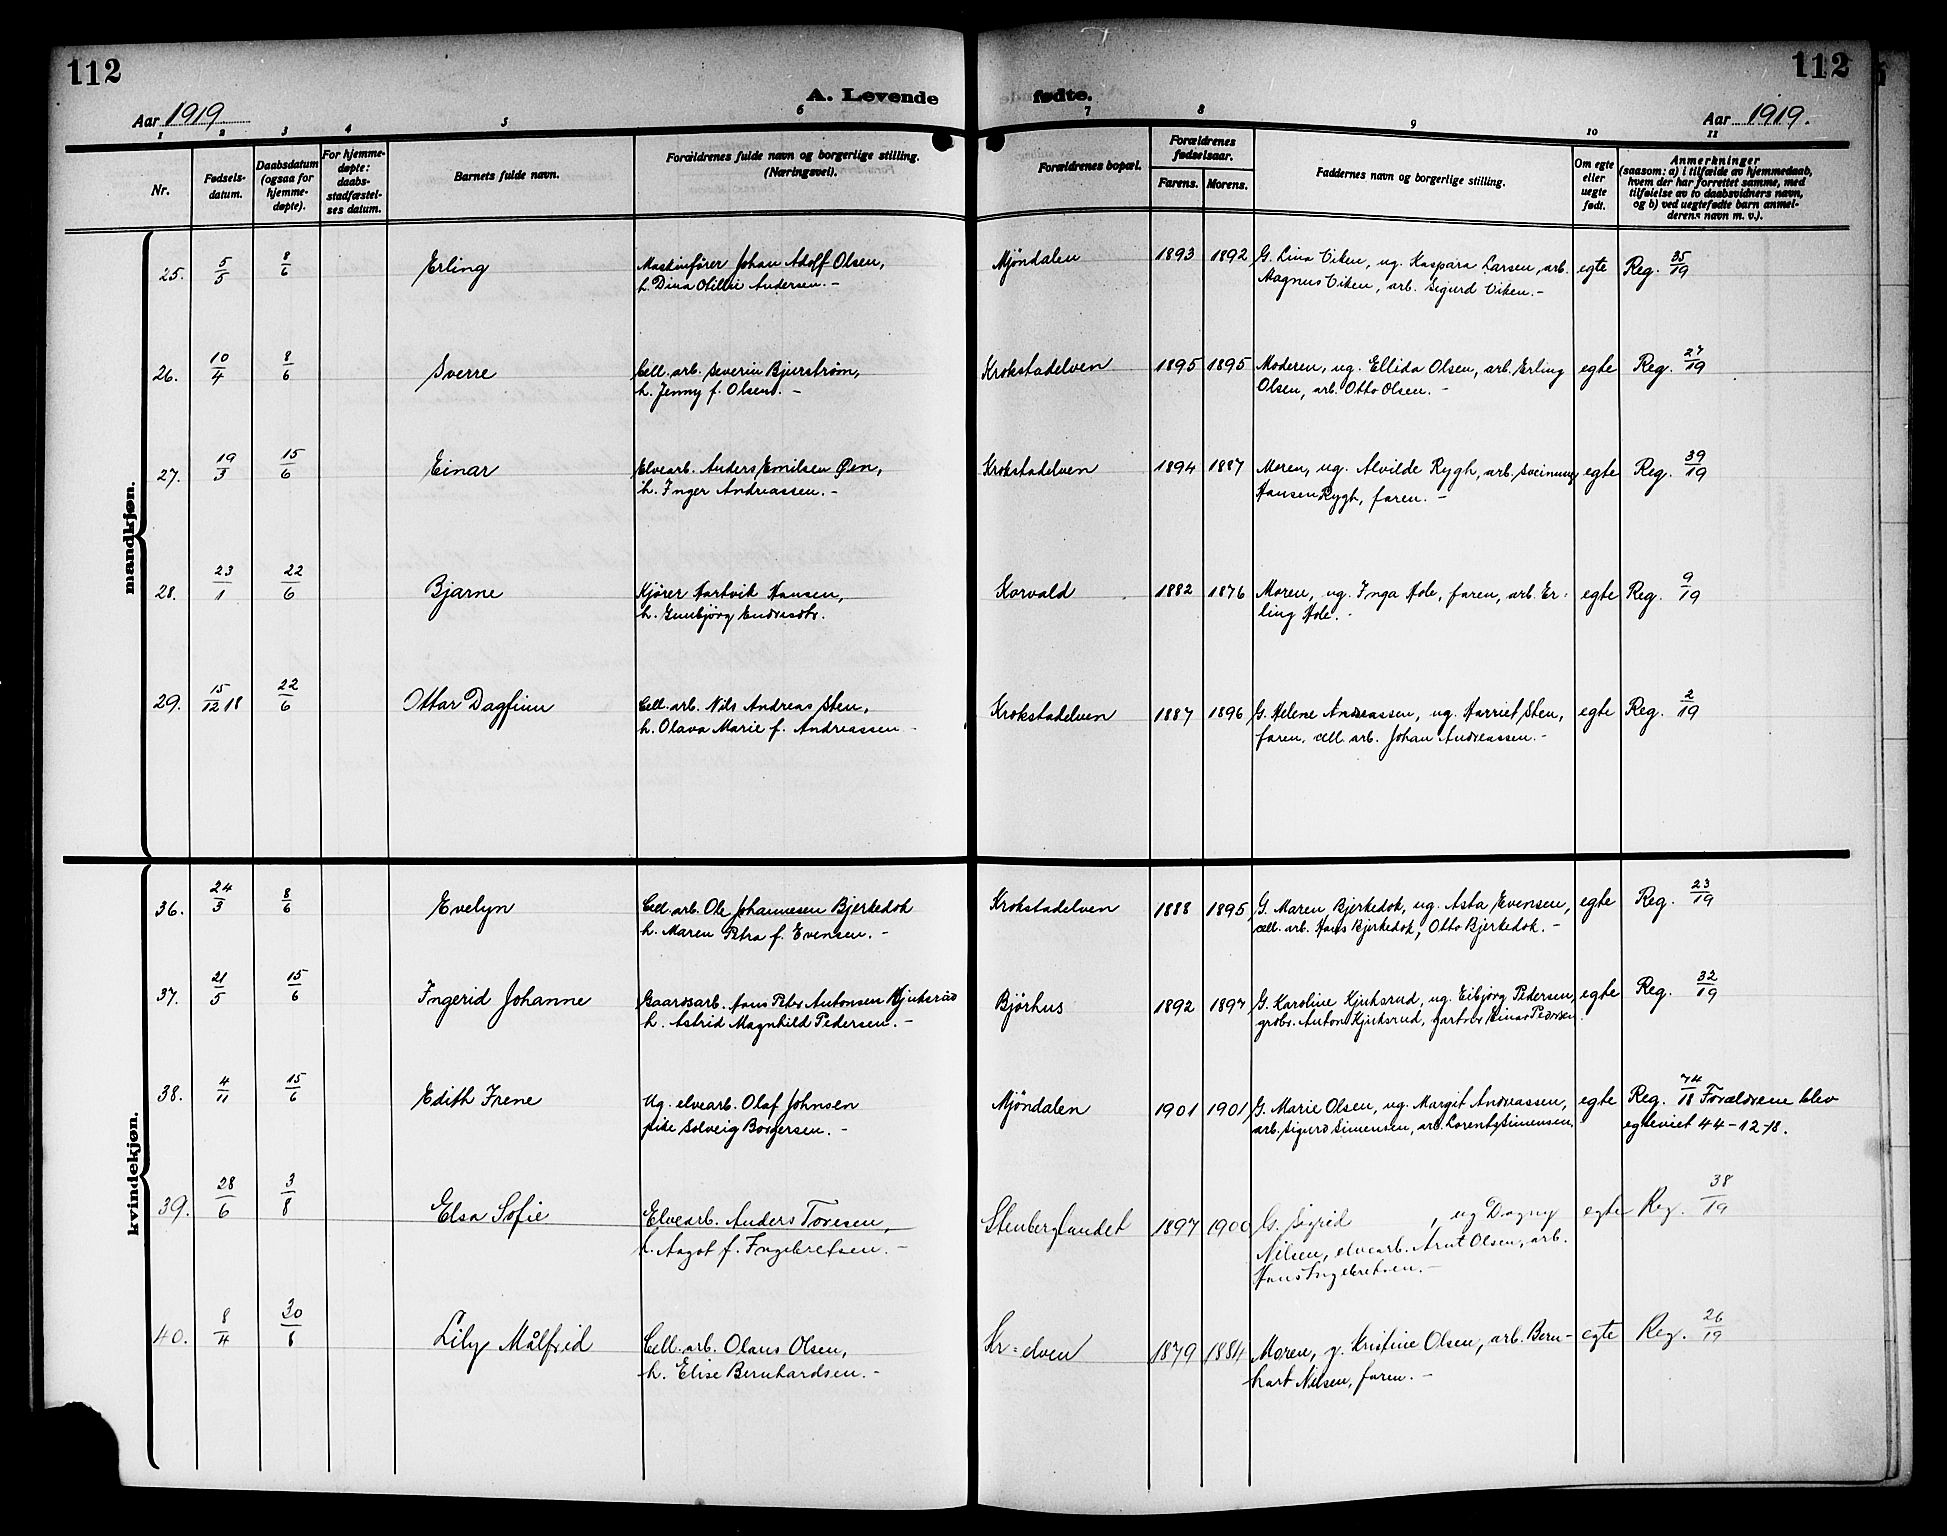 112
112
A. Levende fødte.
Aar 1919
Aar 1919.
1 2 3 4 5 6 7 8 9 10 11
Nr.
Fødsels-
datum.
Daabsdatum
(ogsaa for
hjemme-
døpte).
For hjemme-
døpte:
daabs-
stadfæstel-
ses datum.
Barnets fulde navn.
Forældrenes fulde navn og borgerlige stilling.
(Næringsvei).
Forældrenes bopæl.
Forældrenes
fødselsaar.
Farens. Morens.
Faddernes navn og borgerlige stilling.
Om egte
eller
uegte
født.
Anmerkninger
(saasom: a) i tilfælde av hjemmedaab,
hvem der har forrettet samme, med
tilføielse av to daabsvidners navn,
og b) ved uegtefødte barn anmel-
derens navn m. v.).
mandkjøn.
25. 5/5 8/6 Erling Maskinfører Johan Adolf Olsen, Mjöndalen 1893 1892 G. Lina Viken, ug. Kaspara Larsen, arb. egte Reg. 35/19
h. Dina Otilie Andersen. - Magnus Viken, arb. Sigurd Viken. -
26. 10/4 8/6 Sverre Cell. arb. Severin Bjurström, Krokstadelven 1895 1895 Moderen, ug. Ellida Olsen, arb. Erling egte Reg. 27/19
h. Jenny f. Olsen. - Olsen, arb. Otto Olsen. -
27. 19/3 15/6 Einar Elvearb. Anders Emilsen Øen, Krokstadelven 1894 1887 Moren, ug. Alvilde Rygh, arb. Sveinung egte Reg. 39/19
h. Inger Andreassen. - Hansen Rygh, faren. -
28. 23/1 22/6 Bjarne Kjører Hartvik Hansen, Korvald 1882 1876 Moren, ug. Inga Hole, faren, arb. Er- egte Reg. 9/19
h. Gunbjörg Endresdtr. ling Hole. -
29. 15/12 18 22/6 Ottar Dagfinn Cell. arb. Nils Andreas Sten, Krokstadelven 1887 1896 G. Helene Andreassen, ug. Harriet Sten, egte Reg. 2/19
h. Olava Marie f. Andreassen - faren, cell. arb. Johan Andreassen. -
kvindekjøn.
36. 24/3 8/6 Evelyn Cell. arb. Ole Johannesen Bjerkedok Krokstadelven 1888 1895 G. Maren Bjerkedok, ug. Asta Evensen, egte Reg. 23/19
h. Maren Petra f. Evensen. - cell. arb. Hans Bjerkedok, Otto Bjerkedok. -
37. 21/5 15/6 Ingerid Johanne Gaardsarb. Hans Peter Antonsen Kjuksrud Bjørhus 1892 1897 G. Karoline Kjuksrud, ug. Eibjørg Pedersen, egte Reg. 32/19
h. Astrid Magnhild Pedersen. - grdbr. Anton Kjuksrud, gartner Einar Pedersen
38. 4/11 15/6 Edith Irene Ug. elvearb. Olaf Johnsen Mjöndalen 1901 1901 G. Marie Olsen, ug. Margit Andreassen, egte Reg. 74/18 Forældrene blev
pike Solveig Borgersen. - arb. Sigurd Simensen, arb. Lorentz Simensen. egteviet 44-12-18.
39. 28/6 3/8 Elsa Sofie Elvearb. Anders Toresen, Stenberglandet 1897 1900 G. Sigrid , ug Dagny egte Reg. 38/19
h. Aagot f. Ingebretsen. - Nilsen, elvearb. Arnt Olsen, arb.
Hans Ingebretsen. -
40. 8/4 30/8 Lily Målfrid Cell. arb. Olaus Olsen, Kr=elven 1879 1884 Moren, g. Kristine Olsen, arb. Bern- egte Reg. 26/19
h. Elise Bernhardsen. - hart Nilsen, faren. -